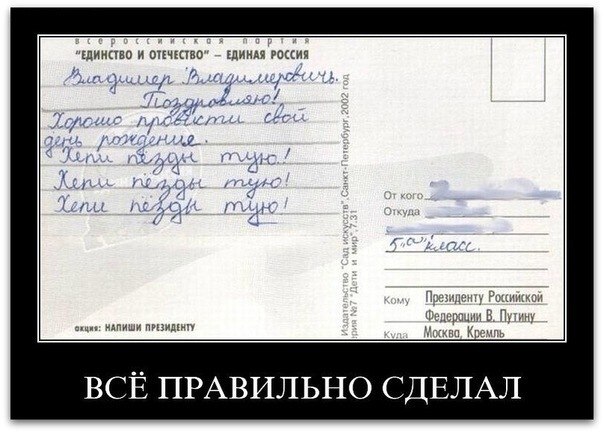 всероссийская партия
"ЕДИНСТВО И ОТЕЧЕСТВО" – ЕДИНАЯ РОССИЯ
Владимер Владимеровичь.
Поздровляю!
Хорошо провисти свой
день рождение.
Хепи пёзды тую!
Хепи пёзды тую!
Хепи пёзды тую!
акция: НАПИШИ ПРЕЗИДЕНТУ
Издательство "Сад искусств", Санкт-Петербург, 2002 год
рия №7 "Дети и мир", 7.31
От кого
Откуда
5 "а" класс.
Кому Президенту Российской
Федерации В. Путину
Куда Москва, Кремль
ВСЁ ПРАВИЛЬНО СДЕЛАЛ